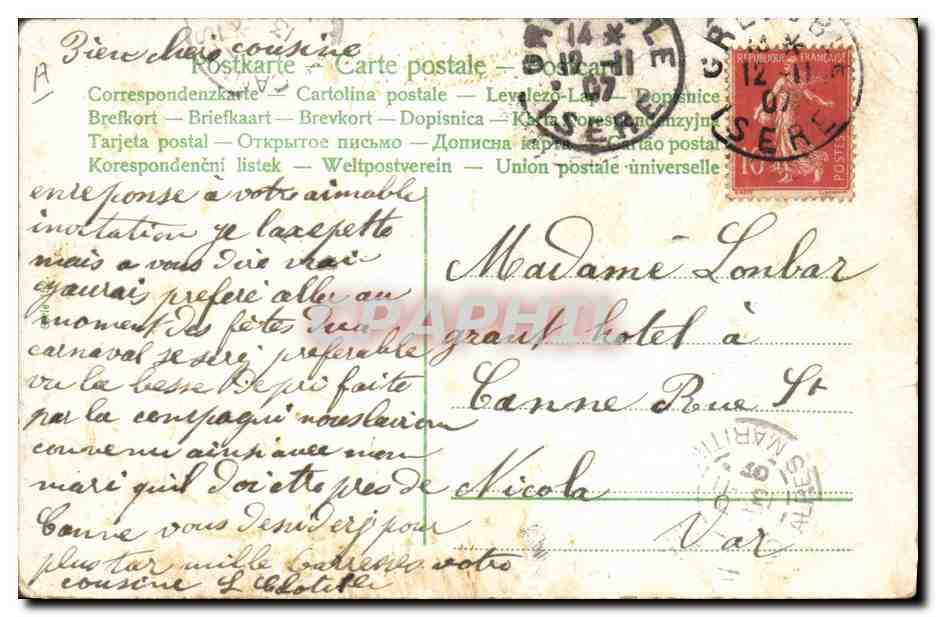 Bien cher cousine
Postkarte - Carte postale - Postcard
Correspondenzkarte - Cartolina postale - Levelezö-Lap - Dopisnice
Brefkort - Briefkaart - Brevkort - Dopisnica - Karta Korespondenzyjna
Tarjeta postal - Открытое письмо - Дописна карта - Cartão postal
Korespondenční listek - Weltpostverein - Union postale universelle
A
GRENOBLE
14 *
12 - 11
07
ISERE
GRENOBLE
14 *
12 - 11
07
ISERE
REPUBLIQUE FRANÇAISE
10
POSTES
en reponse a votre aimable
invitation je laxepette
mais a vous dire vrai
jaurais preferé aller au
moment des fêtes du
carnaval se serj preferable
vu la besse de pri faite
par la compagni nous lavion
convenu ainsi avec mon
mari quil doi etre pres de
Canne vous desiderj pour
plus tar mille Carresses votre
cousine L Clotil
CPAPHIL
Madame Lonbar
grant hotel à
Canne Rue St
Nicola
Var
ALPES MARITIM